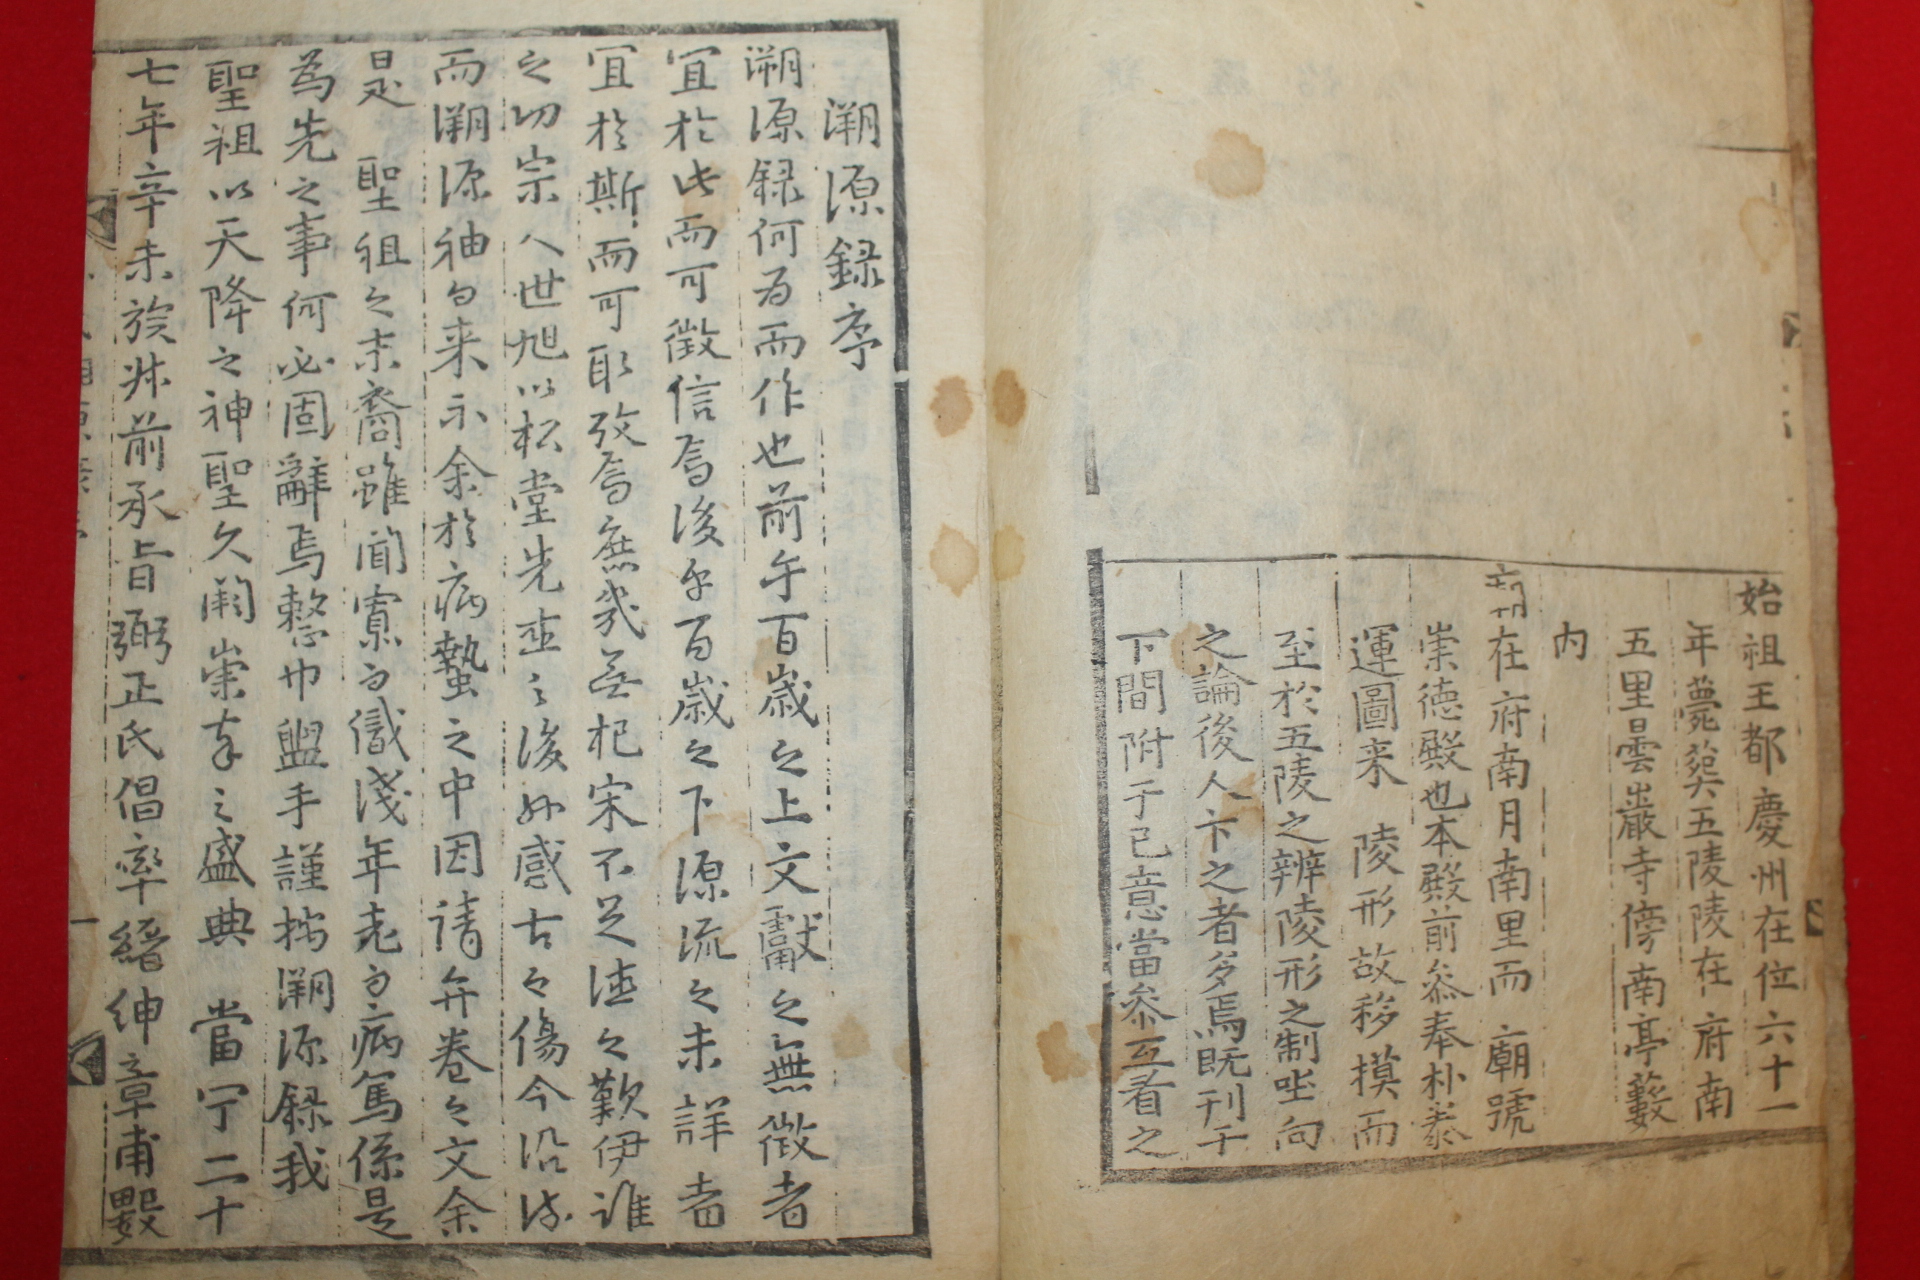 始祖王都慶州在位六十一
年薨葬五陵在府南
五里曇巖寺傍南亭藪
内
在府南月南里而廟號
崇德殿也本殿前叅奉朴泰
運圖来陵形故移摸而
至於五陵之辨陵形之制坐向
之論後人卞之者多焉既刊于
下間附于已意當叅互看之
溯源録序
溯源録何為而作也前乎百歳之上文獻之無徵者
宜於此而可徵信焉後乎百歳之下源流之未詳者
宜於斯而可取攷焉庶幾無杞宋不足徵之歎伊誰
之功宗人世旭以松堂先之後孫感古之傷今沿流
而溯源袖而来示余於病蟄之中因請弁卷之文余
是聖祖之末裔雖聞寡而識淺年老而病篤係是
為先之事何必固辭焉整巾盥手謹按溯源録我
聖祖以天降之神聖久闕崇奉之盛典當宁二十
七年辛未族叔前承旨弼正氏倡率縉紳章甫數